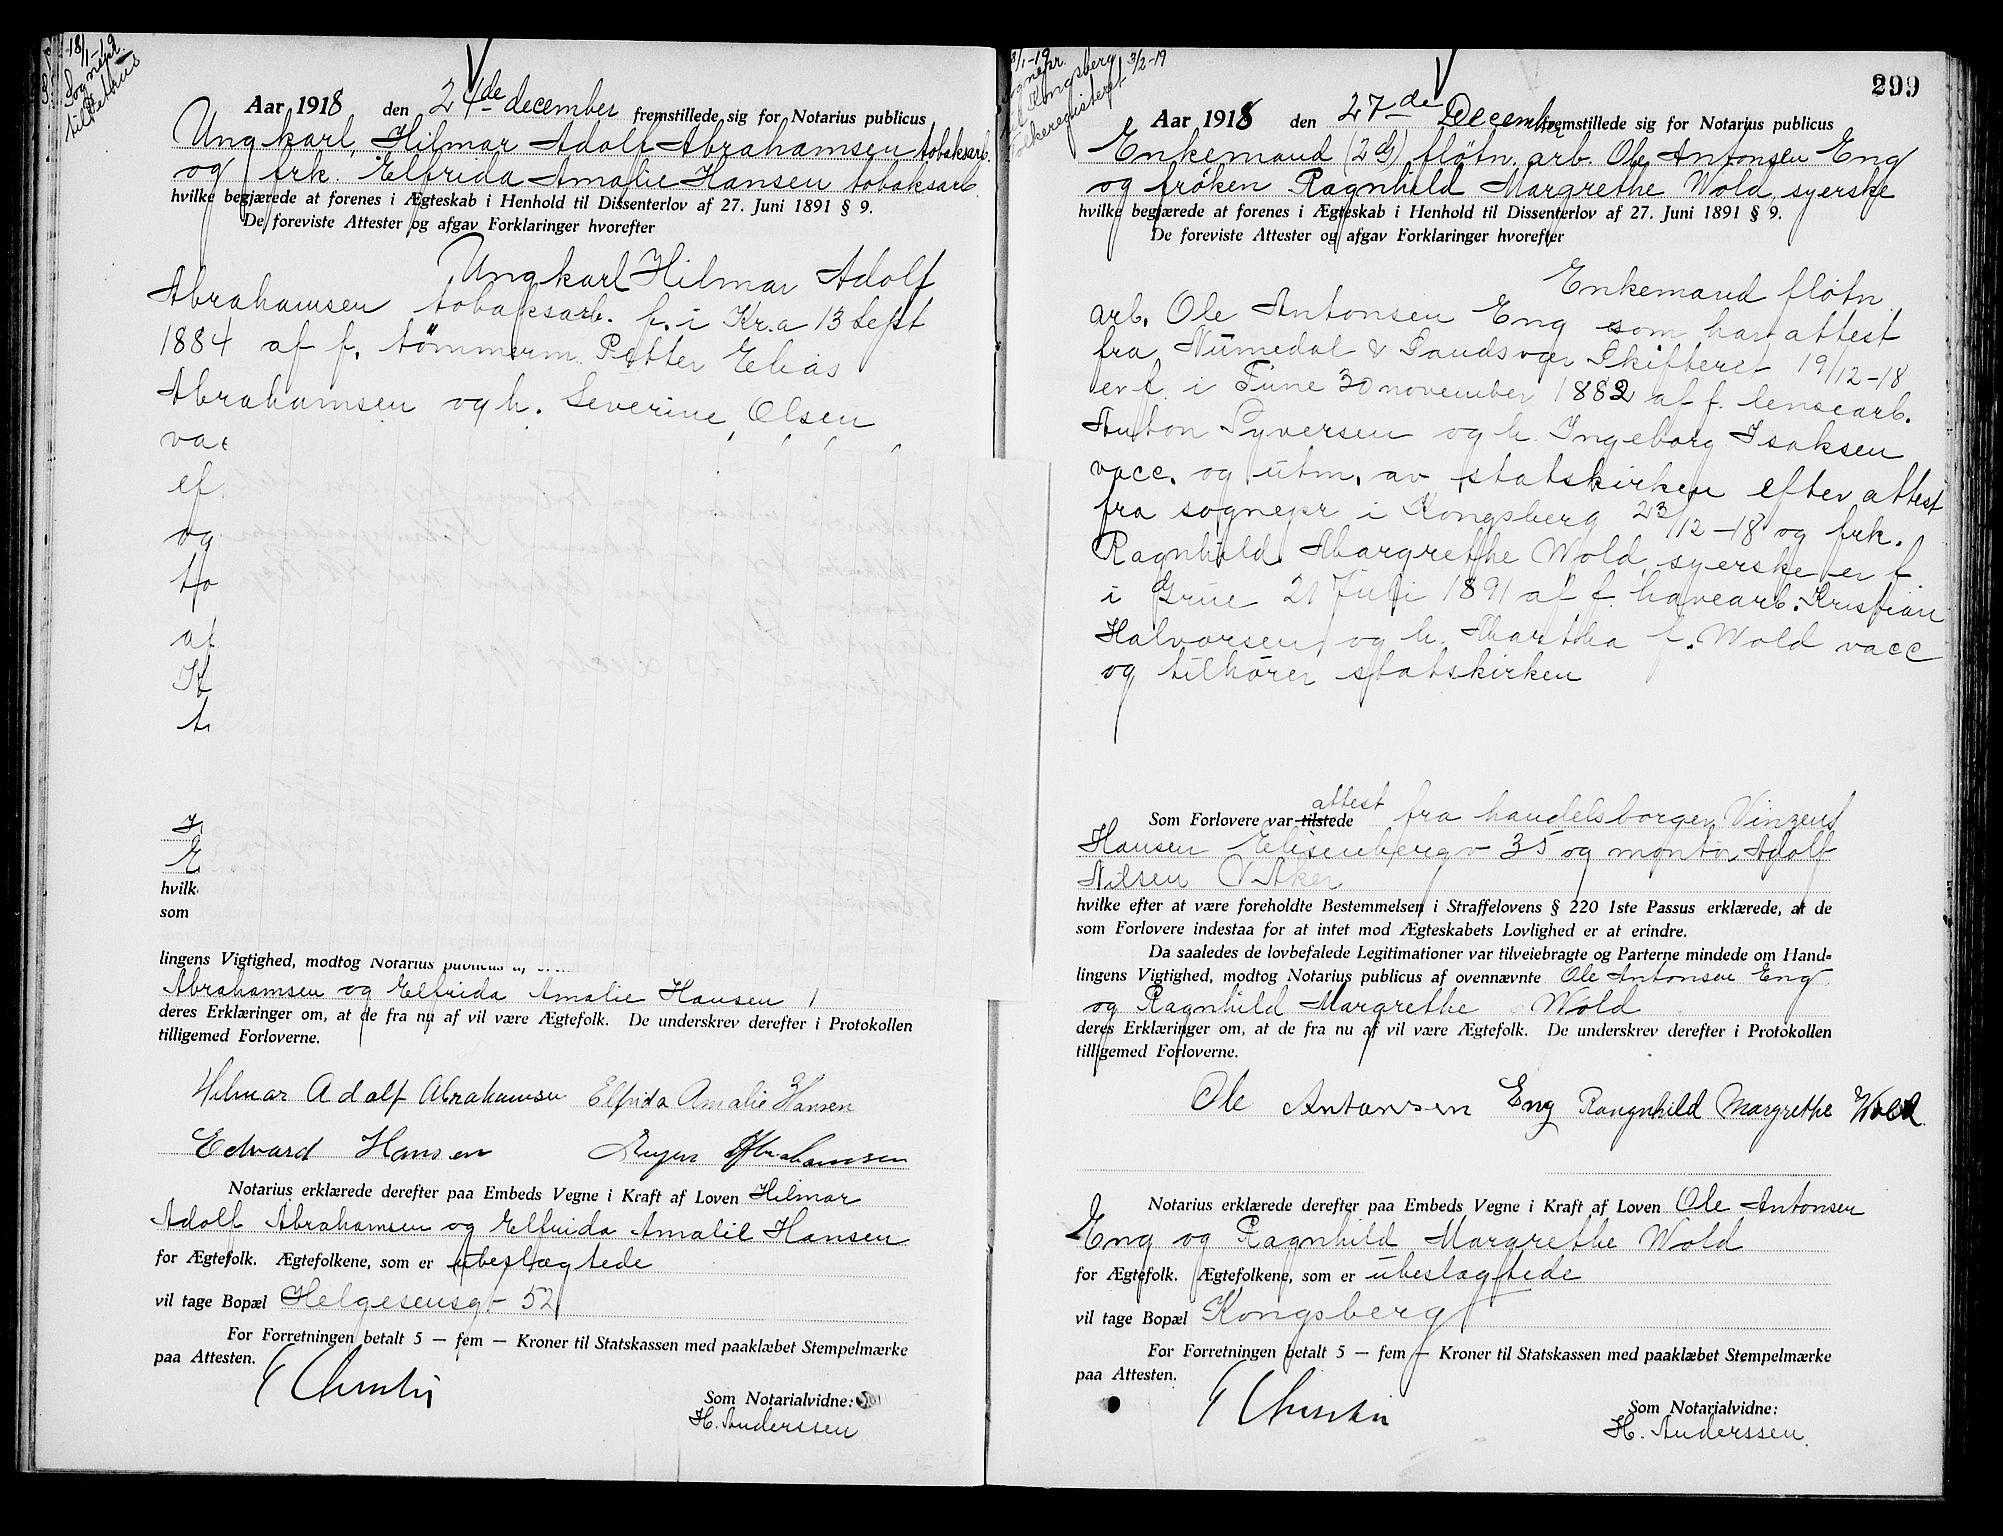 18/1-19
Sognepr.
til Petrus
Aar 1918 den 24de december fremstillede sig for Notarius publicus
Ungkarl, Hilmar Adolf Abrahamsen tobaksarb.
og frk. Elfrida Amalie Hansen tobaksarb
hvilke begjærede at forenes i Ægteskab i Henhold til Dissenterlov af 27. Juni 1891 § 9.
De foreviste Attester og afgav Forklaringer hvorefter
Ungkarl Hilmar Adolf
Abrahamsen tobaksarb. f. i Kr.a 13 Sept
1884 af f. tømmerm. Petter Elias
Abrahamsen og h. Severine Olsen
vac
ef
og
to
af
K
t
E
hvilk
som
lingens Vigtighed, modtog Notarius publicus af
Abrahamsen og Elfrida Amalie Hansen
deres Erklæringer om, at de fra nu af vil være Ægtefolk. De underskrev derefter i Protokollen
tilligemed Forloverne.
Hilmar Adolf Abrahamsen Elfrida Amalie Hansen
Edvard Hansen Abrahamsen
Notarius erklærede derefter paa Embeds Vegne i Kraft af Loven Hilmar
Adolf Abrahamsen og Elfrida Amalie Hansen
for Ægtefolk. Ægtefolkene, som er ubeslægtede
vil tage Bopæl Helgesensg- 52
For Forretningen betalt 5 — fem — Kroner til Statskassen med paaklæbet Stempelmærke
paa Attesten.
Som Notarialvidne:
H. Anderssen
299
8/1-19
Sognepr.
til Kongsberg
Folkeregisteret 3/2-19
Aar 1918 den 27de December fremstillede sig for Notarius publicus
Enkemand (2dg) fløtn. arb. Ole Antonsen Eng
og frøken Ragnhild Margrethe Wold, syerske
hvilke begjærede at forenes i Ægteskab i Henhold til Dissenterlov af 27. Juni 1891 § 9.
De foreviste Attester og afgav Forklaringer hvorefter
Enkemand fløtn.
arb. Ole Antonsen Eng som har attest
fra Numedal & Sandsvær Skifteret 19/12-18
er f. i Tune 30 november 1882 af f. lensearb.
Anton Syversen og h. Ingeborg Isaksen
vacc. og utm. av statskirken efter attest
fra sognepr i Kongsberg 23/12-18 og frk.
Ragnhild Margrethe Wold, syerske er f.
i Grue 21 Juli 1891 af f. havearb. Kristian
Halvorsen og h. Martha f. Wold vacc
og tilhører statskirken
Som Forlovere var tilstede attest fra handelsborger Vinzens
Hansen Elisenbergv 35 og montør Adolf
Nilsen V. Aker
hvilke efter at være foreholdte Bestemmelsen i Straffelovens § 220 1ste Passus erklærede, at de
som Forlovere indestaa for at intet mod Ægteskabets Lovlighed er at erindre.
Da saaledes de lovbefalede Legitimationer var tilveiebragte og Parterne mindede om Hand-
lingens Vigtighed, modtog Notarius publicus af ovennævnte Ole Antonsen Eng
og Ragnhild Margrethe Wold
deres Erklæringer om, at de fra nu af vil være Ægtefolk. De underskrev derefter i Protokollen
tilligemed Forloverne.
Ole Antonsen Eng Rangnhild Margrethe Wold
Notarius erklærede derefter paa Embeds Vegne i Kraft af Loven Ole Antonsen
Eng og Ragnhild Margrethe Wold
for Ægtefolk. Ægtefolkene, som er ubeslagtede
vil tage Bopæl Kongsberg
For Forretningen betalt 5 — fem — Kroner til Statskassen med paaklæbet Stempelmærke
paa Attesten.
Som Notarialvidne:
H. Anderssen.